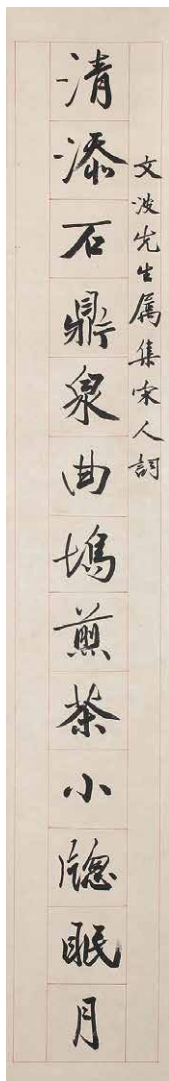 文波先生属集宋人詞
清添石鼎泉曲塢煎茶小牕眠月